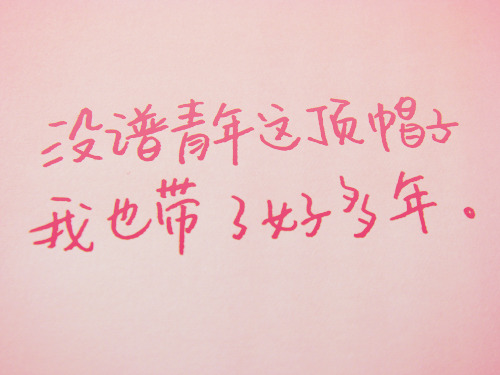 没谱青年这顶帽子
我也带了好多年。